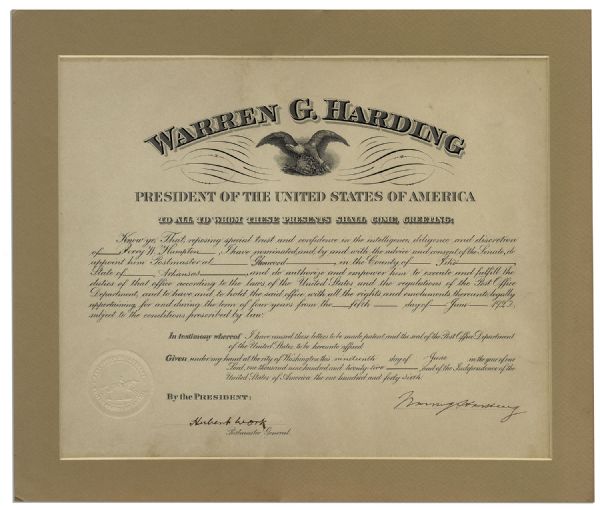 WARREN G. HARDING
PRESIDENT OF THE UNITED STATES OF AMERICA
TO ALL TO WHOM THESE PRESENTS SHALL COME, GREETING:
Know ye, That, reposing special trust and confidence in the intelligence, diligence, and discretion
of W. Hampton, I have nominated, and, by and with the advice and consent of the Senate, do
appoint him Postmaster at Glenwood, in the County of Pike,
State of Arkansas, and do authorize and empower him to execute and fulfill the
duties of that office according to the laws of the United States and the regulations of the Post Office
Department, and to have and to hold the said office, with all the rights and emoluments thereunto legally
appertaining, for and during the term of four years from the fifth day of June, 1922,
subject to the conditions prescribed by law.
In testimony whereof I have caused these letters to be made patent, and the seal of the Post Office Department
of the United States to be hereunto affixed.
Given under my hand at the city of Washington this nineteenth day of June in the year of our
Lord one thousand nine hundred and twenty-two and of the Independence of the
United States of America the one hundred and forty-sixth.
By the PRESIDENT:
Warren G Harding
Hubert Work
Postmaster General.